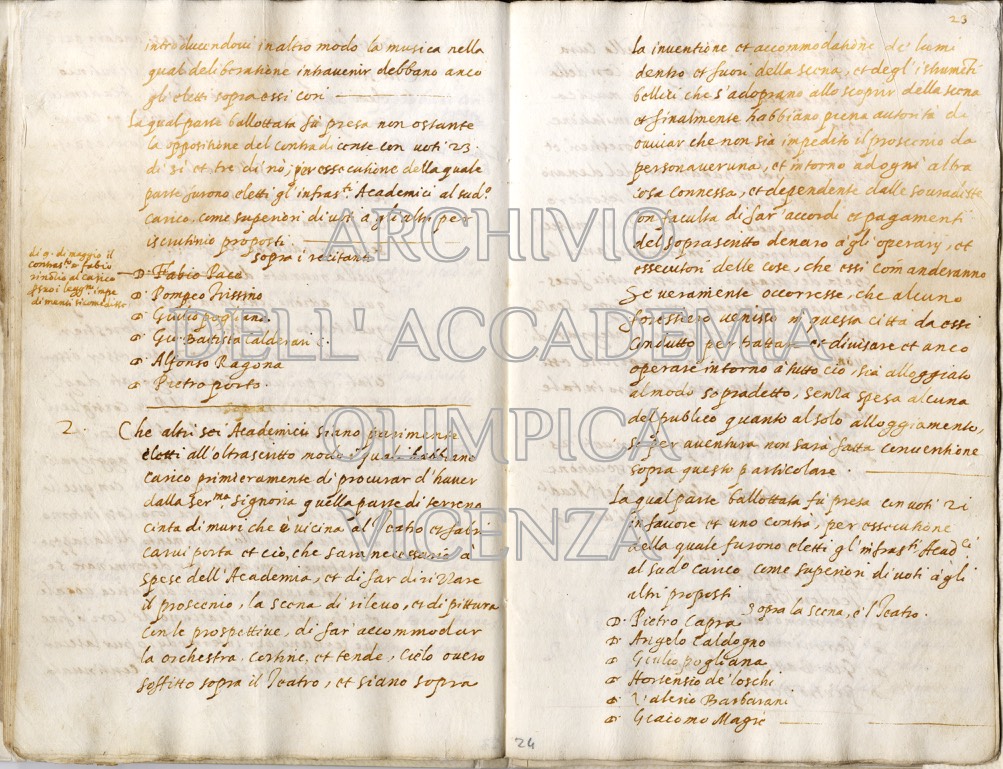 introducendovi in altro modo la musica nella
qual deliberatione intravenir debbano anco
gli eletti sopra essi cori
La qual parte ballottata fù presa non ostante
la oppositione del contradicente con voti 23.
di sì et tre di nò; per essecutione della quale
parte furono eletti gl'infras.ti Academici al sud.o
carico, come superiori di voti à gli altri per
iscrutinio proposti
sopra i recitanti
di 9. di maggio il
contras.to Fabio
rinōtiò al carico
impe
dimenti
D. Fabio Pace
D. Pompeo Trissino
D. Giulio pogliana
D. Gio. Batista Calderari
D. Alfonso Ragona
D. Pietro porto.
2. Che altri sei Academici siano parimente
eletti all'oltrascritto modo i quali habbiano
carico primieramente di procurar d'haver
dalla Ser.ma Signoria quella parte di terreno
cinta di muri, che è vicina al Teatro et fabri
carvi porta et ciò, che sarà necessario à
spese dell'Academia, et di far dirizzare
il proscenio, la scena di rilevo, et di pittura
con le prospettive, di far accommodar
la orchestra, cortine, et tende, Cielo overo
soffitto sopra il Teatro, et siano sopra
23
la inventione et accommodatione de' lumi
dentro et fuori della scena, et degl'istrumēti
bellici che s'adoprano allo scoprir della scena
et finalmente habbiano piena autorità di
ovviar che non sia impedito il proscenio da
persona veruna, et intorno ad ogni altra
cosa connessa, et dependente dalle sopradette
con facultà di far accordi et pagamenti
del soprascritto denaro à gli operary, et
essecutori delle cose, che essi comanderanno
Se veramente occorresse, che alcuno
forestiero venisse in questa città da essi
condutto per trattare et divisare et anco
operare intorno à tutto ciò, sia alloggiato
al modo sopradetto, senza spesa alcuna
del publico quanto al solo alloggiamento,
se per aventura non sarà fatta conventione
sopra questo particolare.
La qual parte ballottata fù presa con voti 21
in favore et uno contra, per essecutione
della quale furono eletti gl'infras.ti Acad.ci
al sud.o carico come superiori di voti à gli
altri proposti
Sopra la scena, e 'l Teatro.
D. Pietro Capra
D. Angelo Caldogno
D. Giulio pogliana
D. Hortensio de' loschi
D. Valerio Barbarani
D. Giacomo Magrè
24
ARCHIVIO
DELL'ACCADEMIA
OLIMPICA
VICENZA